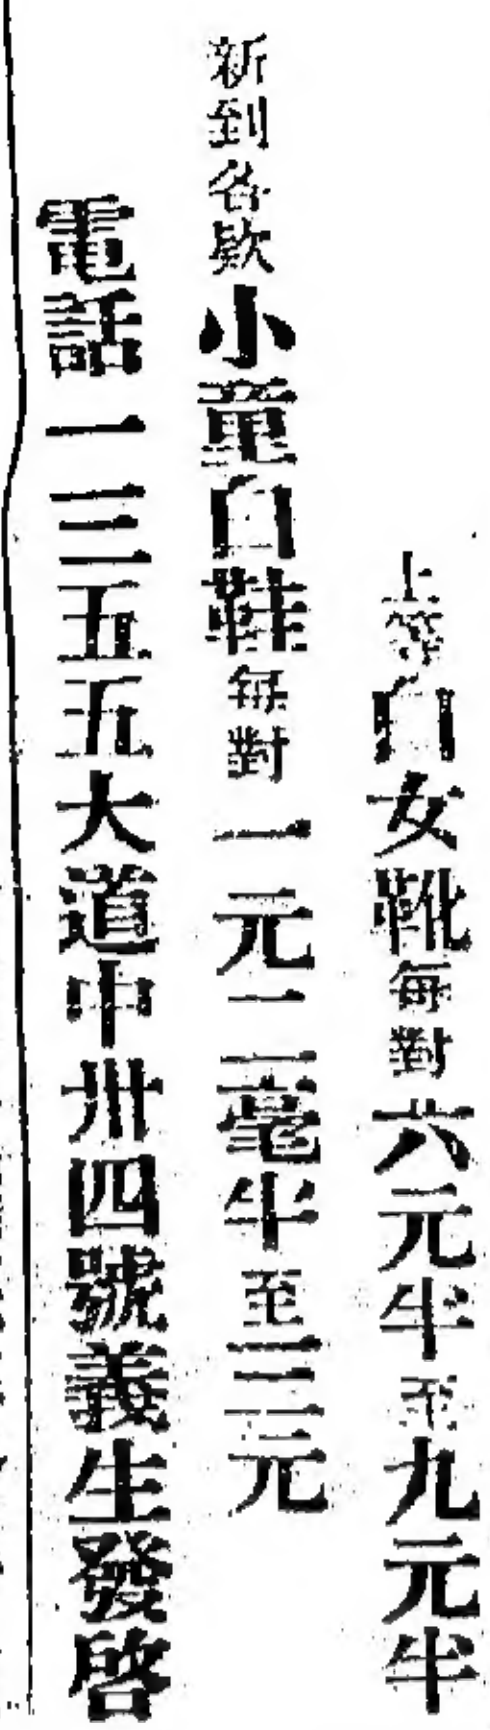 上等白女靴每對六元半至九元半
新到各款小童白鞋每對一元二毫半至三元
電話一三五五大道中卅四號義生發啓